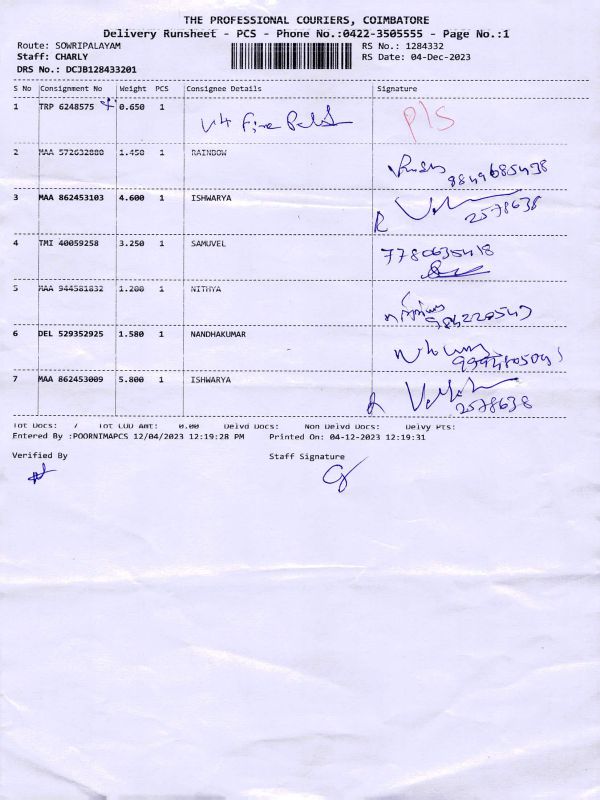 THE PROFESSIONAL COURIERS, COIMBATORE
Delivery Runsheet - PCS - Phone No.:0422-3505555 - Page No.:1
Route: SOWRIPALAYAM RS No.: 1284332
Staff: CHARLY RS Date: 04-Dec-2023
DRS No.: DCJB128433201
S No Consignment No Weight PCS Consignee Details Signature
1 TRP 6248575 0.650 1 P/S
2 MAA 572632880 1.450 1 RAINBOW
9849685438
3 MAA 862453103 4.600 1 ISHWARYA
2578638
4 TMI 40059258 3.250 1 SAMUVEL 7780635418
5 MAA 944581832 1.200 1 NITHYA
6 DEL 529352925 1.580 1 NANDHAKUMAR
7 MAA 862453009 5.800 1 ISHWARYA
2578638
Tot Docs: 7 Tot COD Amt: 0.00 Delvd Docs: Non Delvd Docs: Delvy Pts:
Entered By :POORNIMAPCS 12/04/2023 12:19:28 PM Printed On: 04-12-2023 12:19:31
Verified By Staff Signature